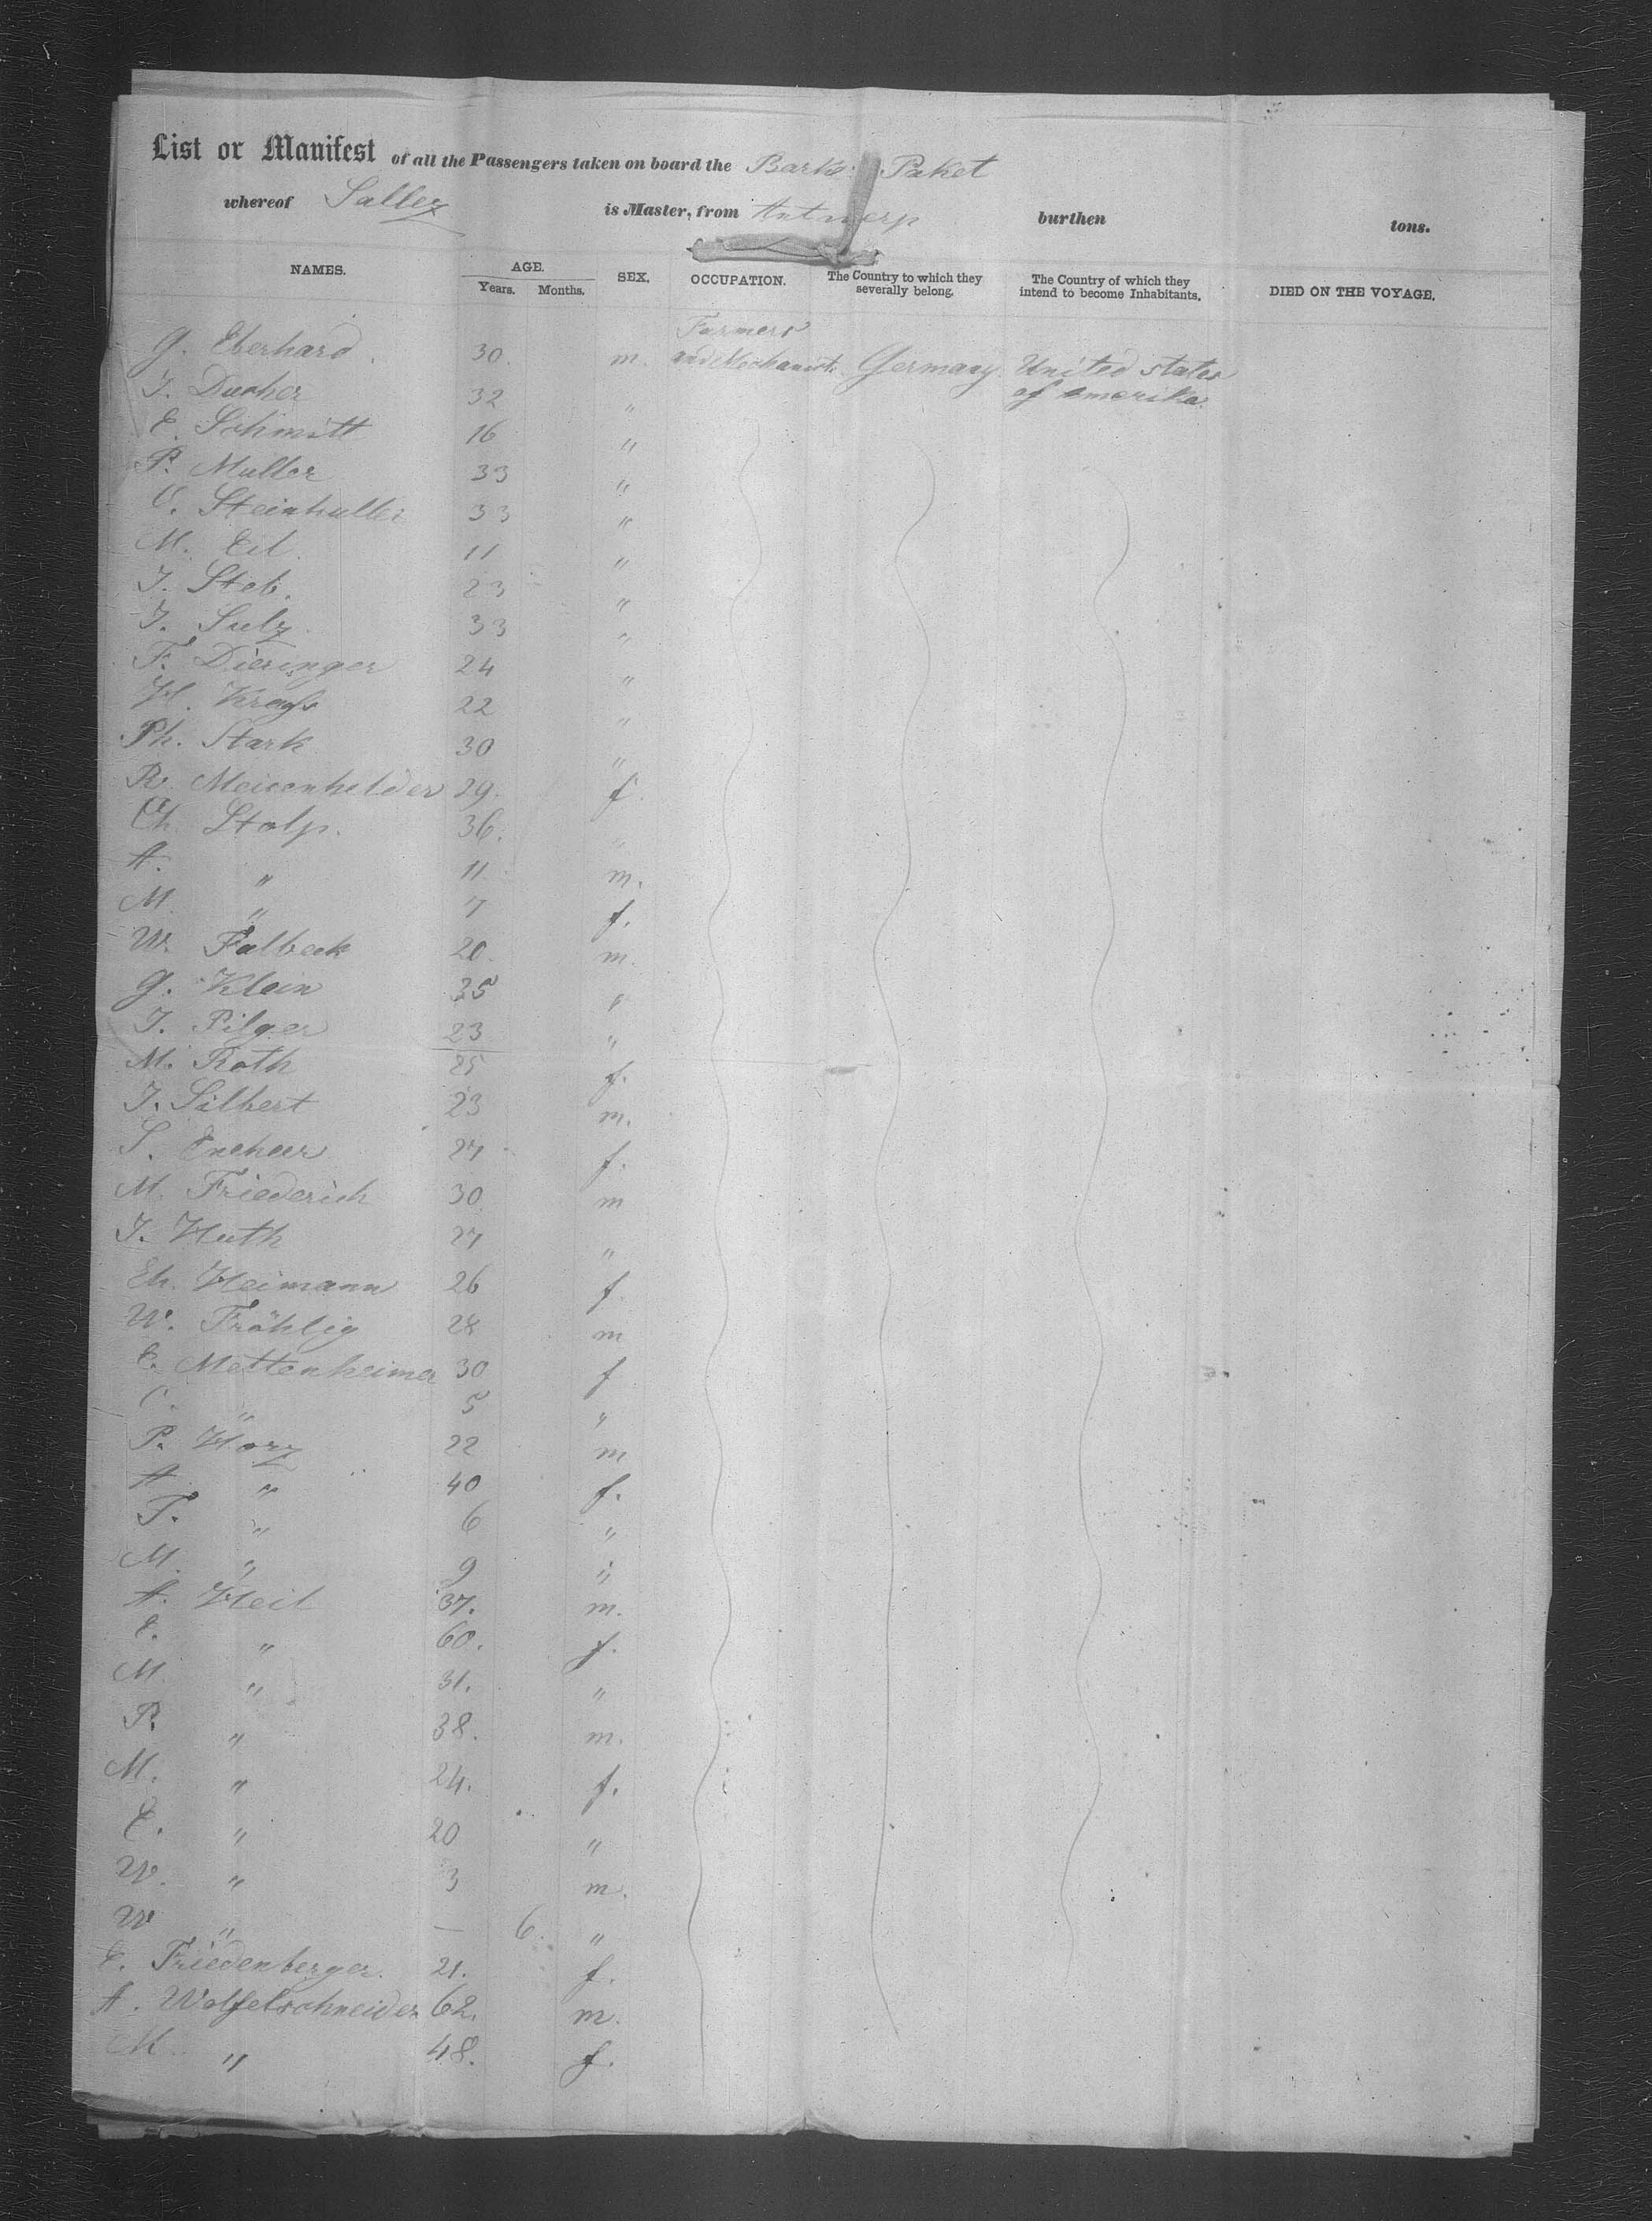 List or Manifest of all the Passengers taken on board the Bark Paket
whereof Saller is Master, from Antwerp burthen tons.
NAMES. AGE. Years. Months. SEX. OCCUPATION. The Country to which they severally belong. The Country of which they intend to become Inhabitants. DIED ON THE VOYAGE.
Farmers
G. Eberhard. 30. m. and Mechanich Germany. United states
J. Ducher 32 " of Amerika.
E. Schmitt 16 "
P. Muller 33 "
C. Steinhuller 33 "
M. Eil. 11 "
J. Steb. 23 "
J. Sulz. 33 "
F. Dieringer 24 "
H. Krass 22 "
Ph. Stark 30 "
R. Meisenhelder 29. f.
Ch. Stolp. 36. "
A. " 11. m.
M. " 7 f.
W. Falbeck 20. m.
G. Klein 35 "
J. Pilger 23 "
M. Roth 25 f.
J. Silbert 23 m.
S. 27 f.
M. Friederich 30 m
J. Huth 27 "
Eh. Heimann 26 f
W. Fröhlig 28 m
E. Mettenheimer 30 f
C. " 5 "
P. Horz 22 m
A. " 40 f.
T. " 6 "
M. " 9 "
A. Heil 37. m.
E. " 60. f.
M. " 31. "
P. " 38. m.
M. " 24. f.
E. " 20 "
W. " 3 m.
W " — 6. "
E. Friedenberger. 21. f.
A. Wolfelschneider 62. m.
M. " 48. f.